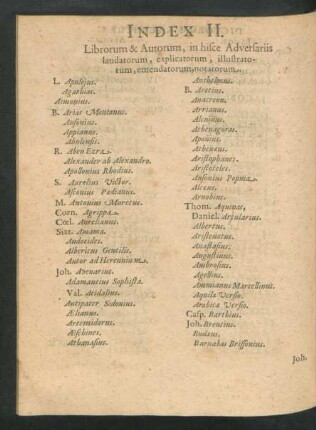 INDEX II.
Librorum & Autorum, in hisce Adversariis
laudatorum, explicatorum, illustrato-
rum, emendatorum, notatorum.
L. Apulejus.
Agathias.
Aimonius.
B. Arias Montanus.
Ausonius.
Appianus.
Abulensis.
R. Aben Ezra.
Alexander ab Alexandro.
Apollonius Rhodius.
S. Aurelius Victor.
Asconius Pedianus.
M. Antonius Muretus.
Corn. Agrippa.
Cœl. Aurelianus.
Sixt. Amama.
Andocides.
Albericus Gentilis.
Autor ad Herennium.
Joh. Avenarius.
Adamantius Sophista.
Val. Acidalius.
Antipater Sidonius.
Ælianus.
Artemidorus.
Æschines.
Athanasius.
Anthelmus.
B. Aretius.
Anacreon.
Arrianus.
Athenagoras.
Apicius.
Athenæus.
Aristophanes.
Aristoteles.
Ausonius Popma.
Alcæus.
Arnobius.
Thom. Aquinas,
Daniel. Arcularius.
Albertus.
Aristænetus.
Anastasius.
Augustinus.
Ambrosius.
Agellius.
Ammianus Marcellinus.
Aquila Versio.
Arabica Versio.
Casp. Barthius.
Joh. Brentius.
Budæus.
Barnabas Brissonius.
Joh.